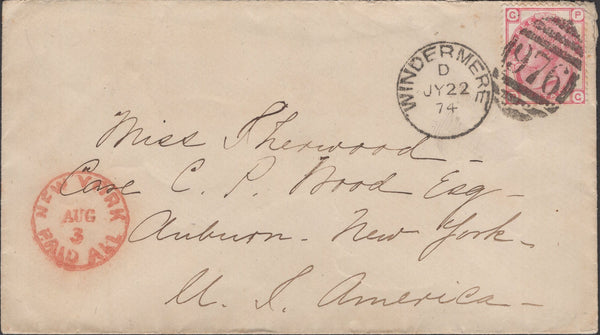 G P
C
976
WINDERMERE
D
JY 22
74
Miss Sherwood -
Care C. P. Wood Esq -
Auburn - New York -
U. S. America -
NEW YORK
AUG
3
PAID ALL